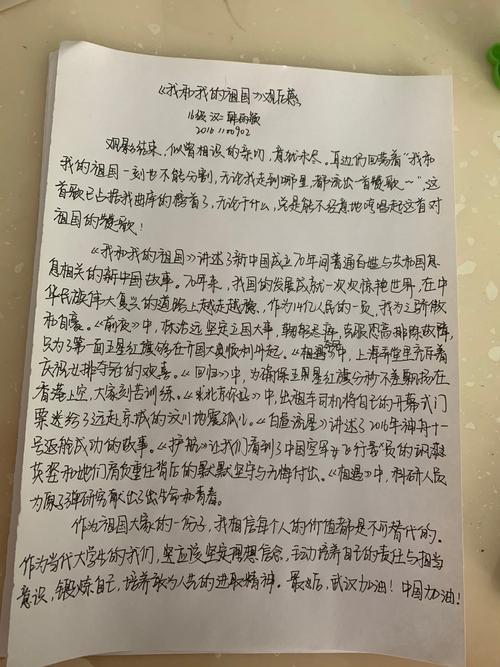 《我和我的祖国》观后感
16级 汉二 韩雨歌
20161100902
观影结束，似曾相识的亲切，意犹未尽。耳边仍回荡着“我和
我的祖国一刻也不能分割，无论我走到哪里，都流出一首赞歌～”，这
首歌已占据我曲库的榜首了，无论干什么，总是能不经意地哼唱起这首对
祖国的赞歌！
《我和我的祖国》讲述了新中国成立70年间普通百姓与共和国息
息相关的新中国故事。70年来，我国的发展成就一次次惊艳世界，在中
华民族伟大复兴的道路上越走越稳，作为14亿人民的一员，我为之骄傲
和自豪。《前夜》中，林治远坚定立国大事，克服困难排除故障，
只为了第一面五星红旗能在开国大典顺利升起。《夺冠》中，上海弄堂里充斥着
庆祝女排夺冠的欢喜。《回归》中，为确保五星红旗分秒不差飘扬在
香港上空，大家刻苦训练。《北京你好》中，出租车司机将自己的开幕式门
票送给了远赴京城的汶川地震孤儿。《白昼流星》讲述了2016年神舟十一
号返航成功的故事。《护航》让我们看到了中国空军女飞行员的飒爽
英姿和她们肩负重任背后的默默坚守与无悔付出。《相遇》中，科研人员
为原子弹研究献出了生命和青春。
作为祖国大家的一份子，我相信每个人的价值都是不可替代的。
作为当代大学生的我们，更应该坚定理想信念，主动培养自己的责任与担当
意识，锻炼自己，培养敢为人先的进取精神。最后，武汉加油！中国加油！